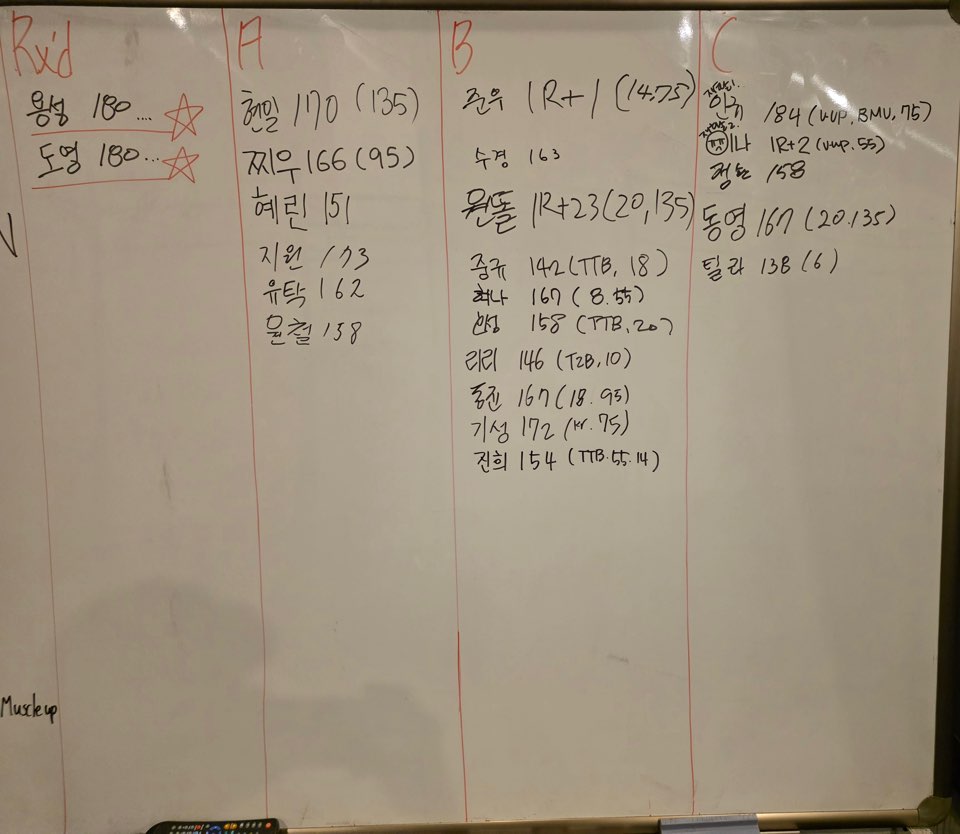 Rx'd
용성 180....
도영 180...
A
현밀 170 (135)
찌우 166 (95)
혜린 151
지원 173
유탁 162
윤철 158
B
준우 1R+1 (14,75)
수경 163
원똘 1R+23 (20,135)
중규 142 (TTB, 18)
167 (8.55)
158 (TTB, 20)
리리 146 (T2B, 10)
동진 167 (18.95)
기성 172 (kr.75)
진희 154 (TTB.55.14)
C
한규 184 (VUP, BMU, 75)
이나 1R+2 (vup.55)
정한 158
동영 167 (20.135)
틸라 138 (6)
Muscle up